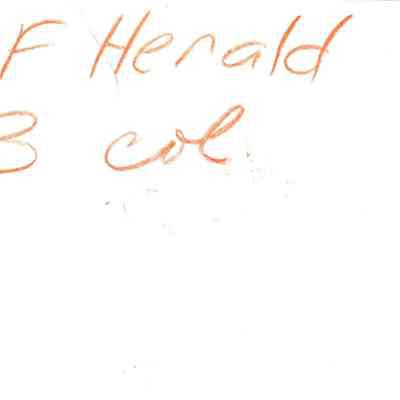 F Herald
3 col